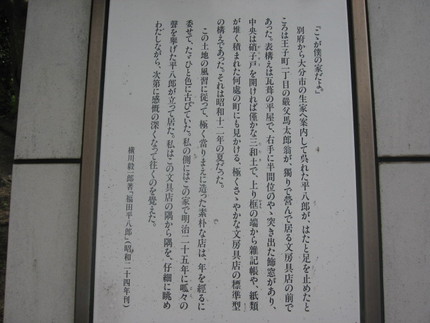 「こゝが僕の家だよ。」
別府から大分市の生家へ案内して呉れた平八郎が、はたと足を止めたと
ころは王子町一丁目の厳父馬太郎翁が、独りで営んで居る文房具店の前で
あった。表構えは瓦葺の平屋で、右手に半間位のやゝ突き出た飾窓があり、
中央は硝子戸を開ければ僅かな三和土で、上り框の端から雑記帳や、紙類
が堆く積まれた何處の町にも見かける、極くさゝやかな文房具店の標準型
の構えであった。それは昭和十二年の夏だった。
この土地の風習に従って、極く當りまえに造った素朴な店は、年を經るに
委せて、たゞひと色に古びていた。私の側にはこの家で明治二十五年に呱々の
聲を挙げた平八郎が立って居た。私はこの文具店の隅から隅を、仔細に眺め
わたしながら、次第に感慨の深くなって往くのを覚えた。
横川毅一郎著『福田平八郎』(昭和二十四年刊)